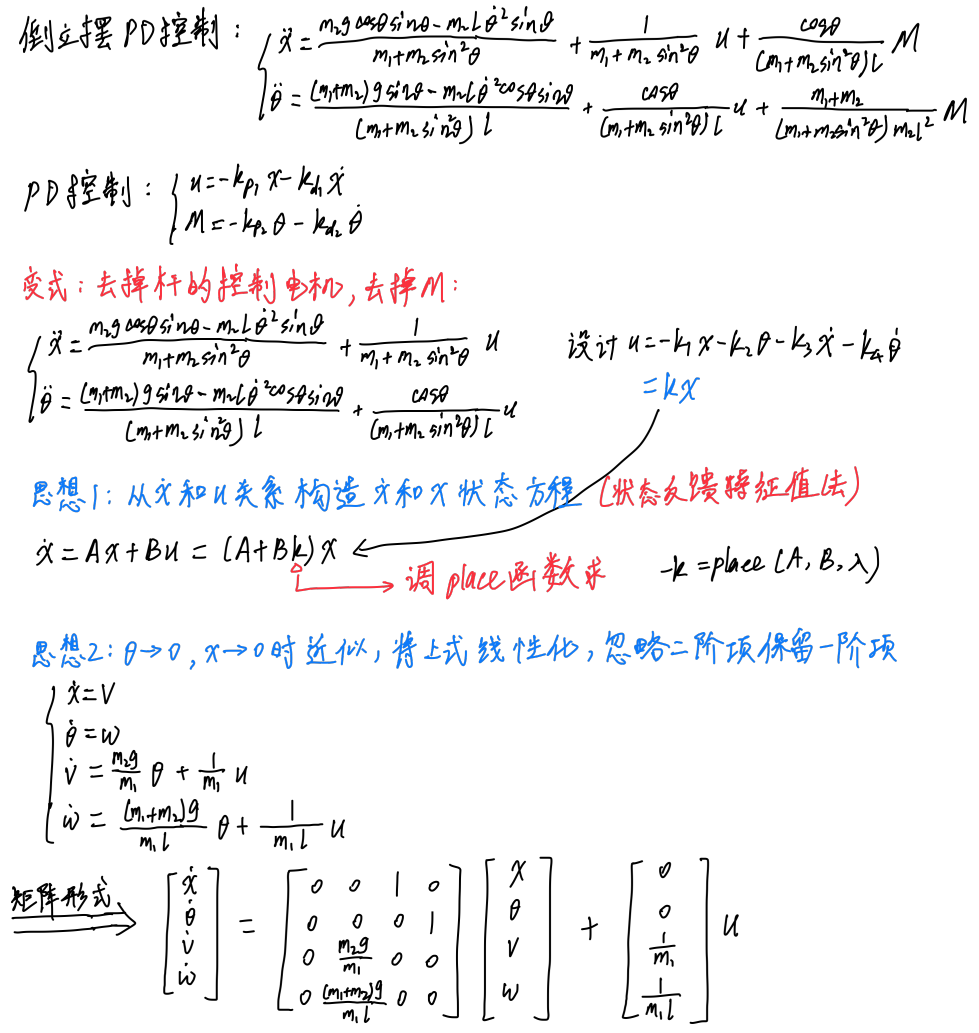 倒立摆PD控制：{ ẍ = (m₂g cosθ sinθ − m₂Lθ̇² sinθ)/(m₁+m₂sin²θ) + 1/(m₁+m₂sin²θ) u + cosθ/((m₁+m₂sin²θ)l) M
θ̈ = ((m₁+m₂)g sinθ − m₂lθ̇²cosθ sinθ)/((m₁+m₂sin²θ)l) + cosθ/((m₁+m₂sin²θ)l) u + (m₁+m₂)/((m₁+m₂sin²θ)m₂l²) M
PD控制：{ u=-kp₁x-kd₁ẋ
M=-kp₂θ-kd₂θ̇
变式：去掉杆的控制电机，去掉M：
ẍ = (m₂g cosθ sinθ − m₂Lθ̇² sinθ)/(m₁+m₂sin²θ) + 1/(m₁+m₂sin²θ) u
设计 u=-k₁x-k₂θ-k₃ẋ-k₄θ̇
=kx
θ̈ = ((m₁+m₂)g sinθ − m₂lθ̇²cosθ sinθ)/((m₁+m₂sin²θ)l) + cosθ/((m₁+m₂sin²θ)l) u
思想1：从ẋ和u关系构造ẋ和x状态方程（状态反馈特征值法）
ẋ=Ax+Bu=(A+Bk)x
调place函数求
-k=place(A,B,λ)
思想2：θ→0,x→0时近似，将上式线性化，忽略二阶项保留一阶项
ẋ=v
θ̇=w
v̇ = (m₂g/m₁) θ + (1/m₁) u
ẇ = ((m₁+m₂)g/(m₁l)) θ + (1/(m₁l)) u
矩阵形式 [ẋ θ̇ v̇ ẇ] = [0 0 1 0; 0 0 0 1; 0 m₂g/m₁ 0 0; 0 (m₁+m₂)g/(m₁l) 0 0] [x θ v w] + [0 0 1/m₁ 1/(m₁l)] u